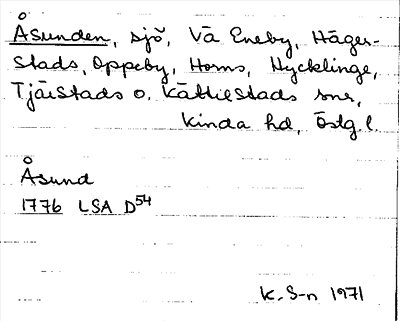 Åsunden, sjö, Vä Eneby, Häger-
stads, Oppeby, Horns, Hycklinge,
Tjärstads o. Kättilstads snr,
Kinda hd, Östg.l.
Åsund
1776 LSA D54
K. S-n 1971